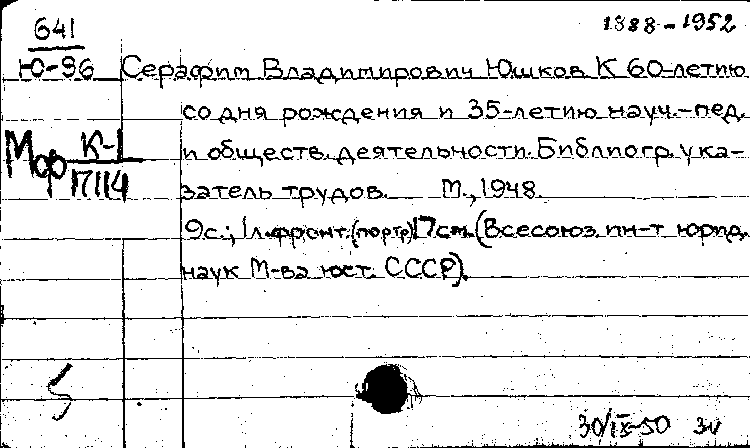 641
1888-1952
Ю-96 Серафим Владимирович Юшков К 60-летию
со дня рождения и 35-летию науч.-пед.
и обществ. деятельности. Библиогр. ука-
затель трудов. М., 1948.
9с.; 1л.фронт.(портр) 17см. (Всесоюз. ин-т юрид.
наук М-ва юст. СССР).
Мф К-1
17114
30/IX-50